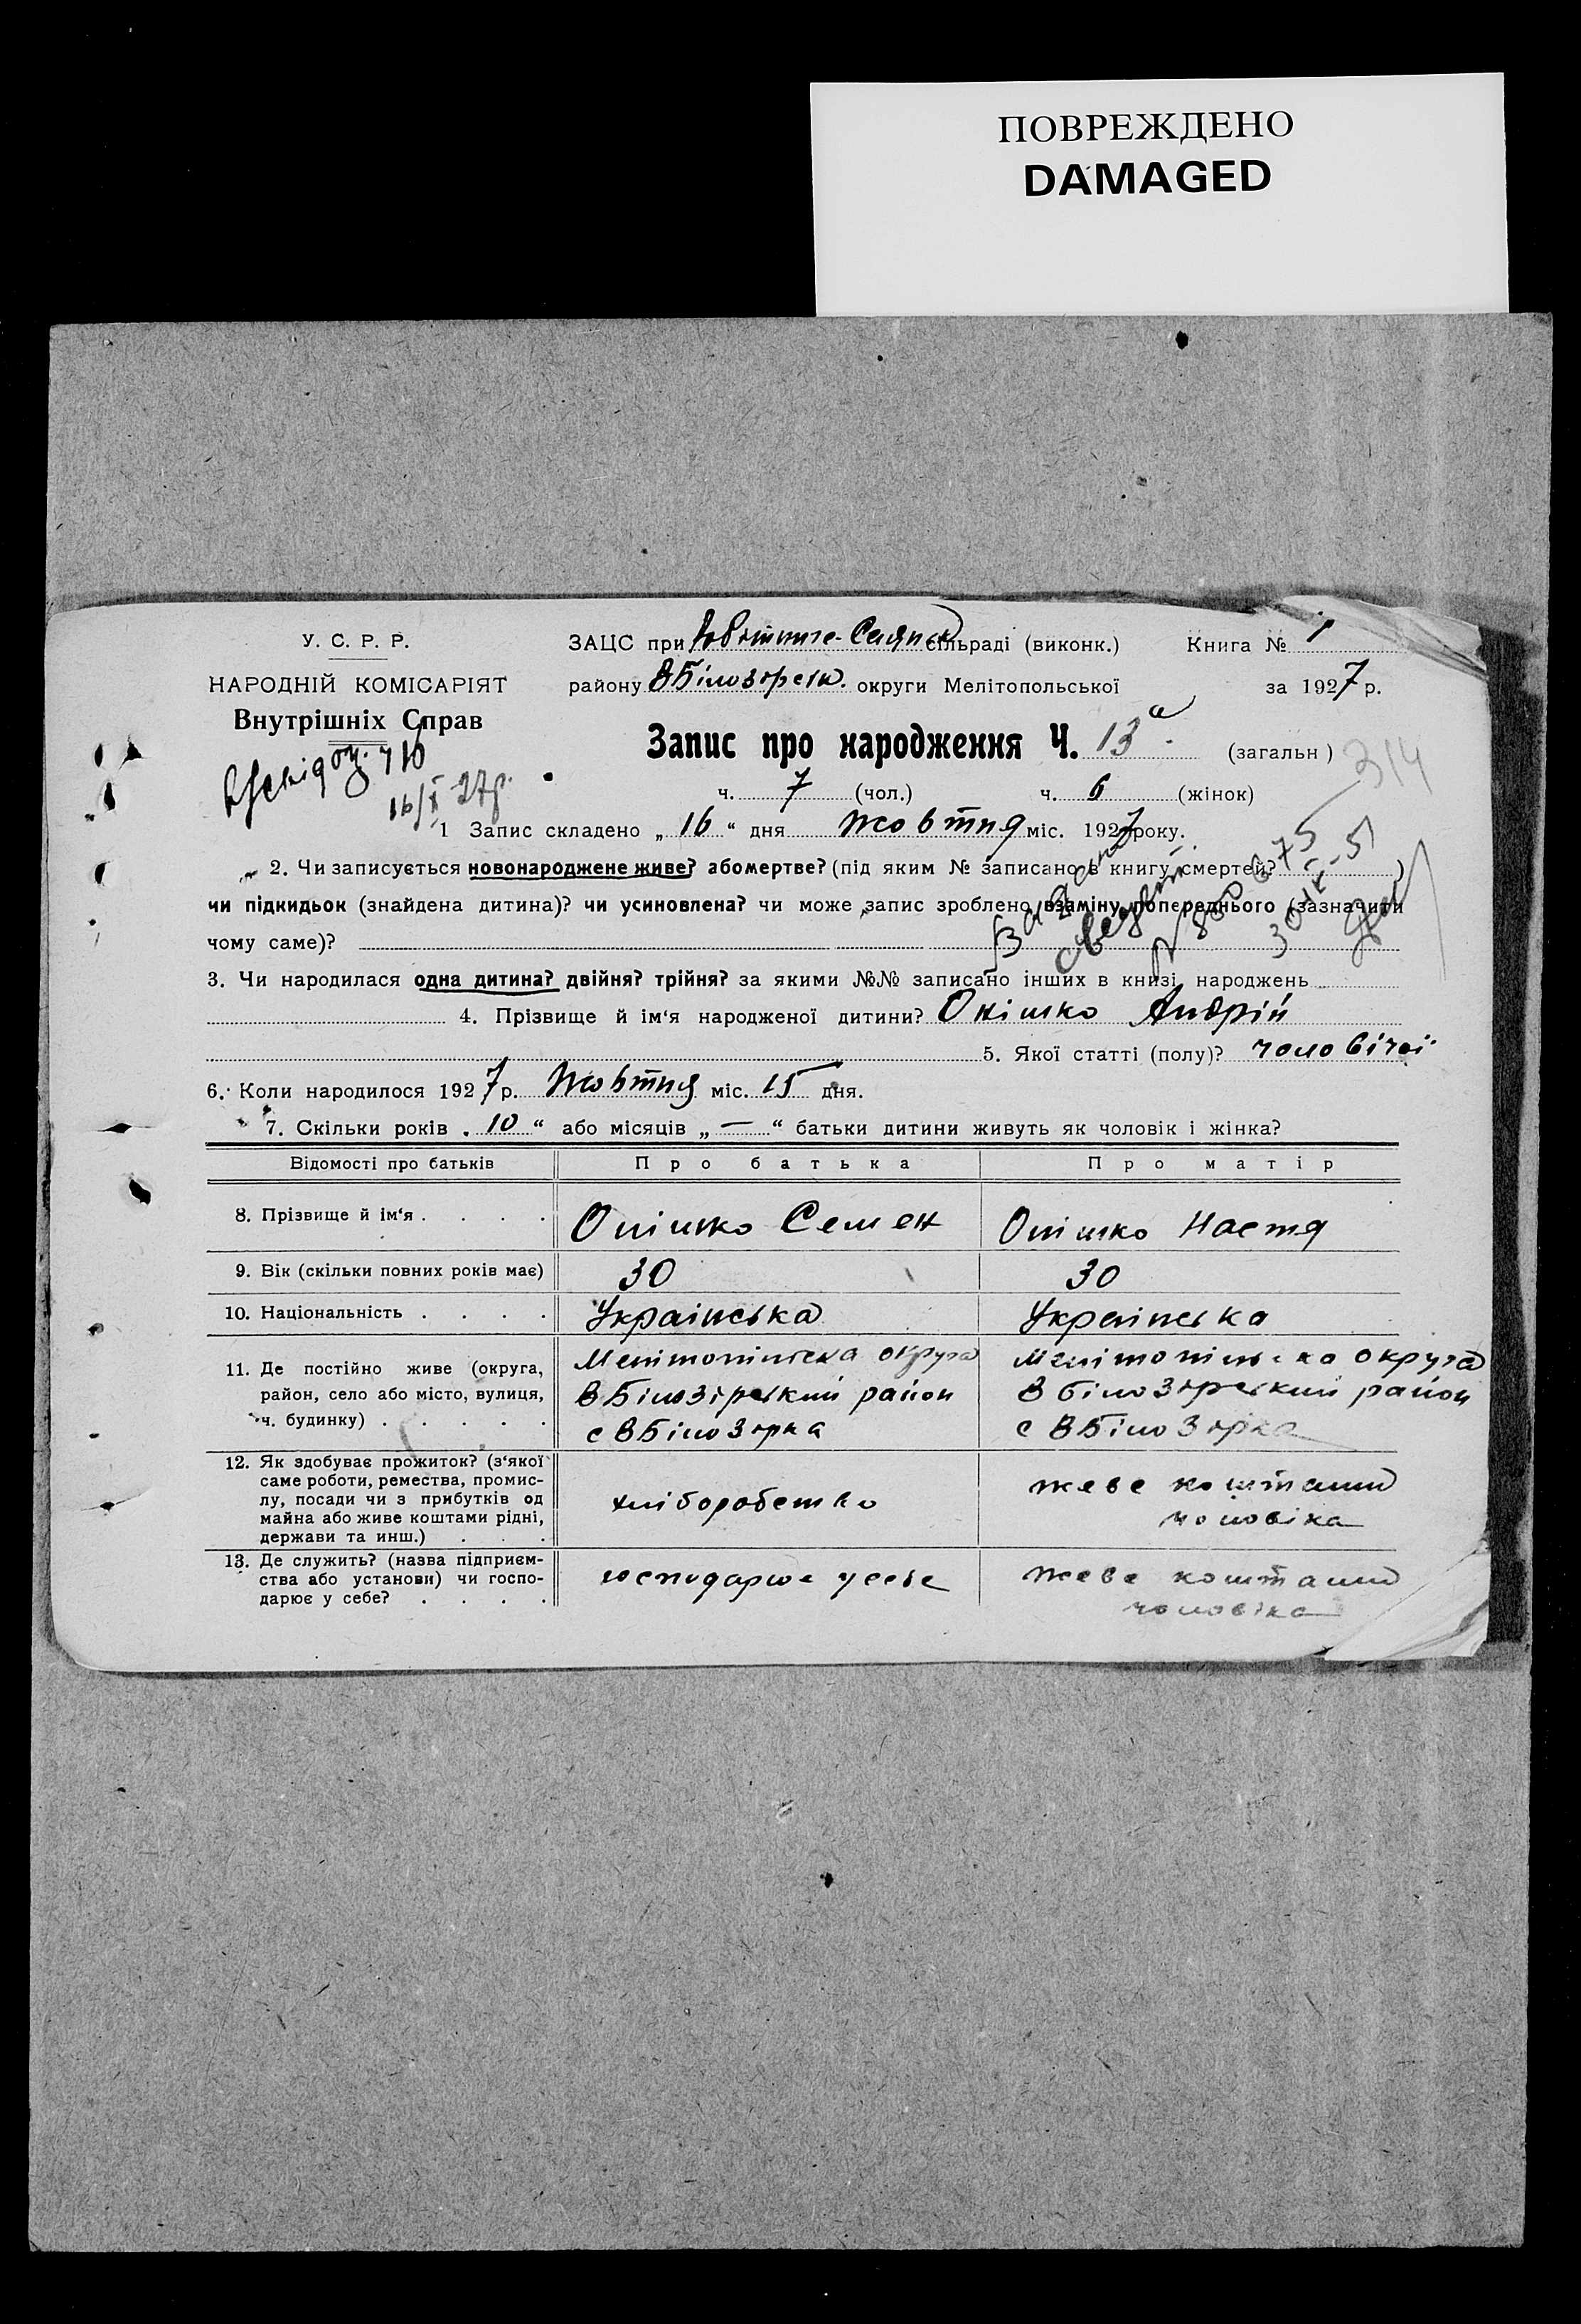 ПОВРЕЖДЕНО
DAMAGED
У. С. Р. Р.
НАРОДНІЙ КОМІСАРІЯТ
Внутрішніх Справ
710
16/X 27р.
ЗАЦС при сільраді (виконк.) Книга № 1
району ВБілозірськ. округи Мелітопольської за 1927 р.
Запис про народження Ч. 13а (загальн)
314
ч. 7 (чол.) ч. 6 (жінок)
1 Запис складено „ 16 “ дня Жовтня міс. 1927 року.
2. Чи записується новонароджене живе? або мертве? (під яким № записано в книгу смертей? )
чи підкидьок (знайдена дитина)? чи усиновлена? чи може запис зроблено взаміну попереднього (зазначити
чому саме)?
3. Чи народилася одна дитина? двійня? трійня? за якими №№ записано інших в книзі народжень
4. Прізвище й ім'я народженої дитини? Опішко Андрій
5. Якої статті (полу)? чоловічої
6. Коли народилося 1927 р. Жовтня міс. 15 дня.
7. Скільки років „ 10 “ або місяців „ — “ батьки дитини живуть як чоловік і жінка?
Відомості про батьків Про батька Про матір
8. Прізвище й ім'я . . . . Опішко Семен Опішко Настя
9. Вік (скільки повних років має) 30 30
10. Національність . . . . Українська Українська
11. Де постійно живе (округа, район, село або місто, вулиця, ч. будинку) . . . . .
Мелітопільська округа
ВБілозірський район
с ВБілозірка
Мелітопільська округа
ВБілозірський район
с ВБілозірка
12. Як здобуває прожиток? (з'якої
саме роботи, ремества, промис-
лу, посади чи з прибутків од
майна або живе коштами рідні,
держави та инш.) . . .
хліборобство
жеве коштами
чоловіка
13. Де служить? (назва підприєм-
ства або установи) чи госпо-
дарює у себе? . . . .
господарює у себе
жеве коштами
чоловіка